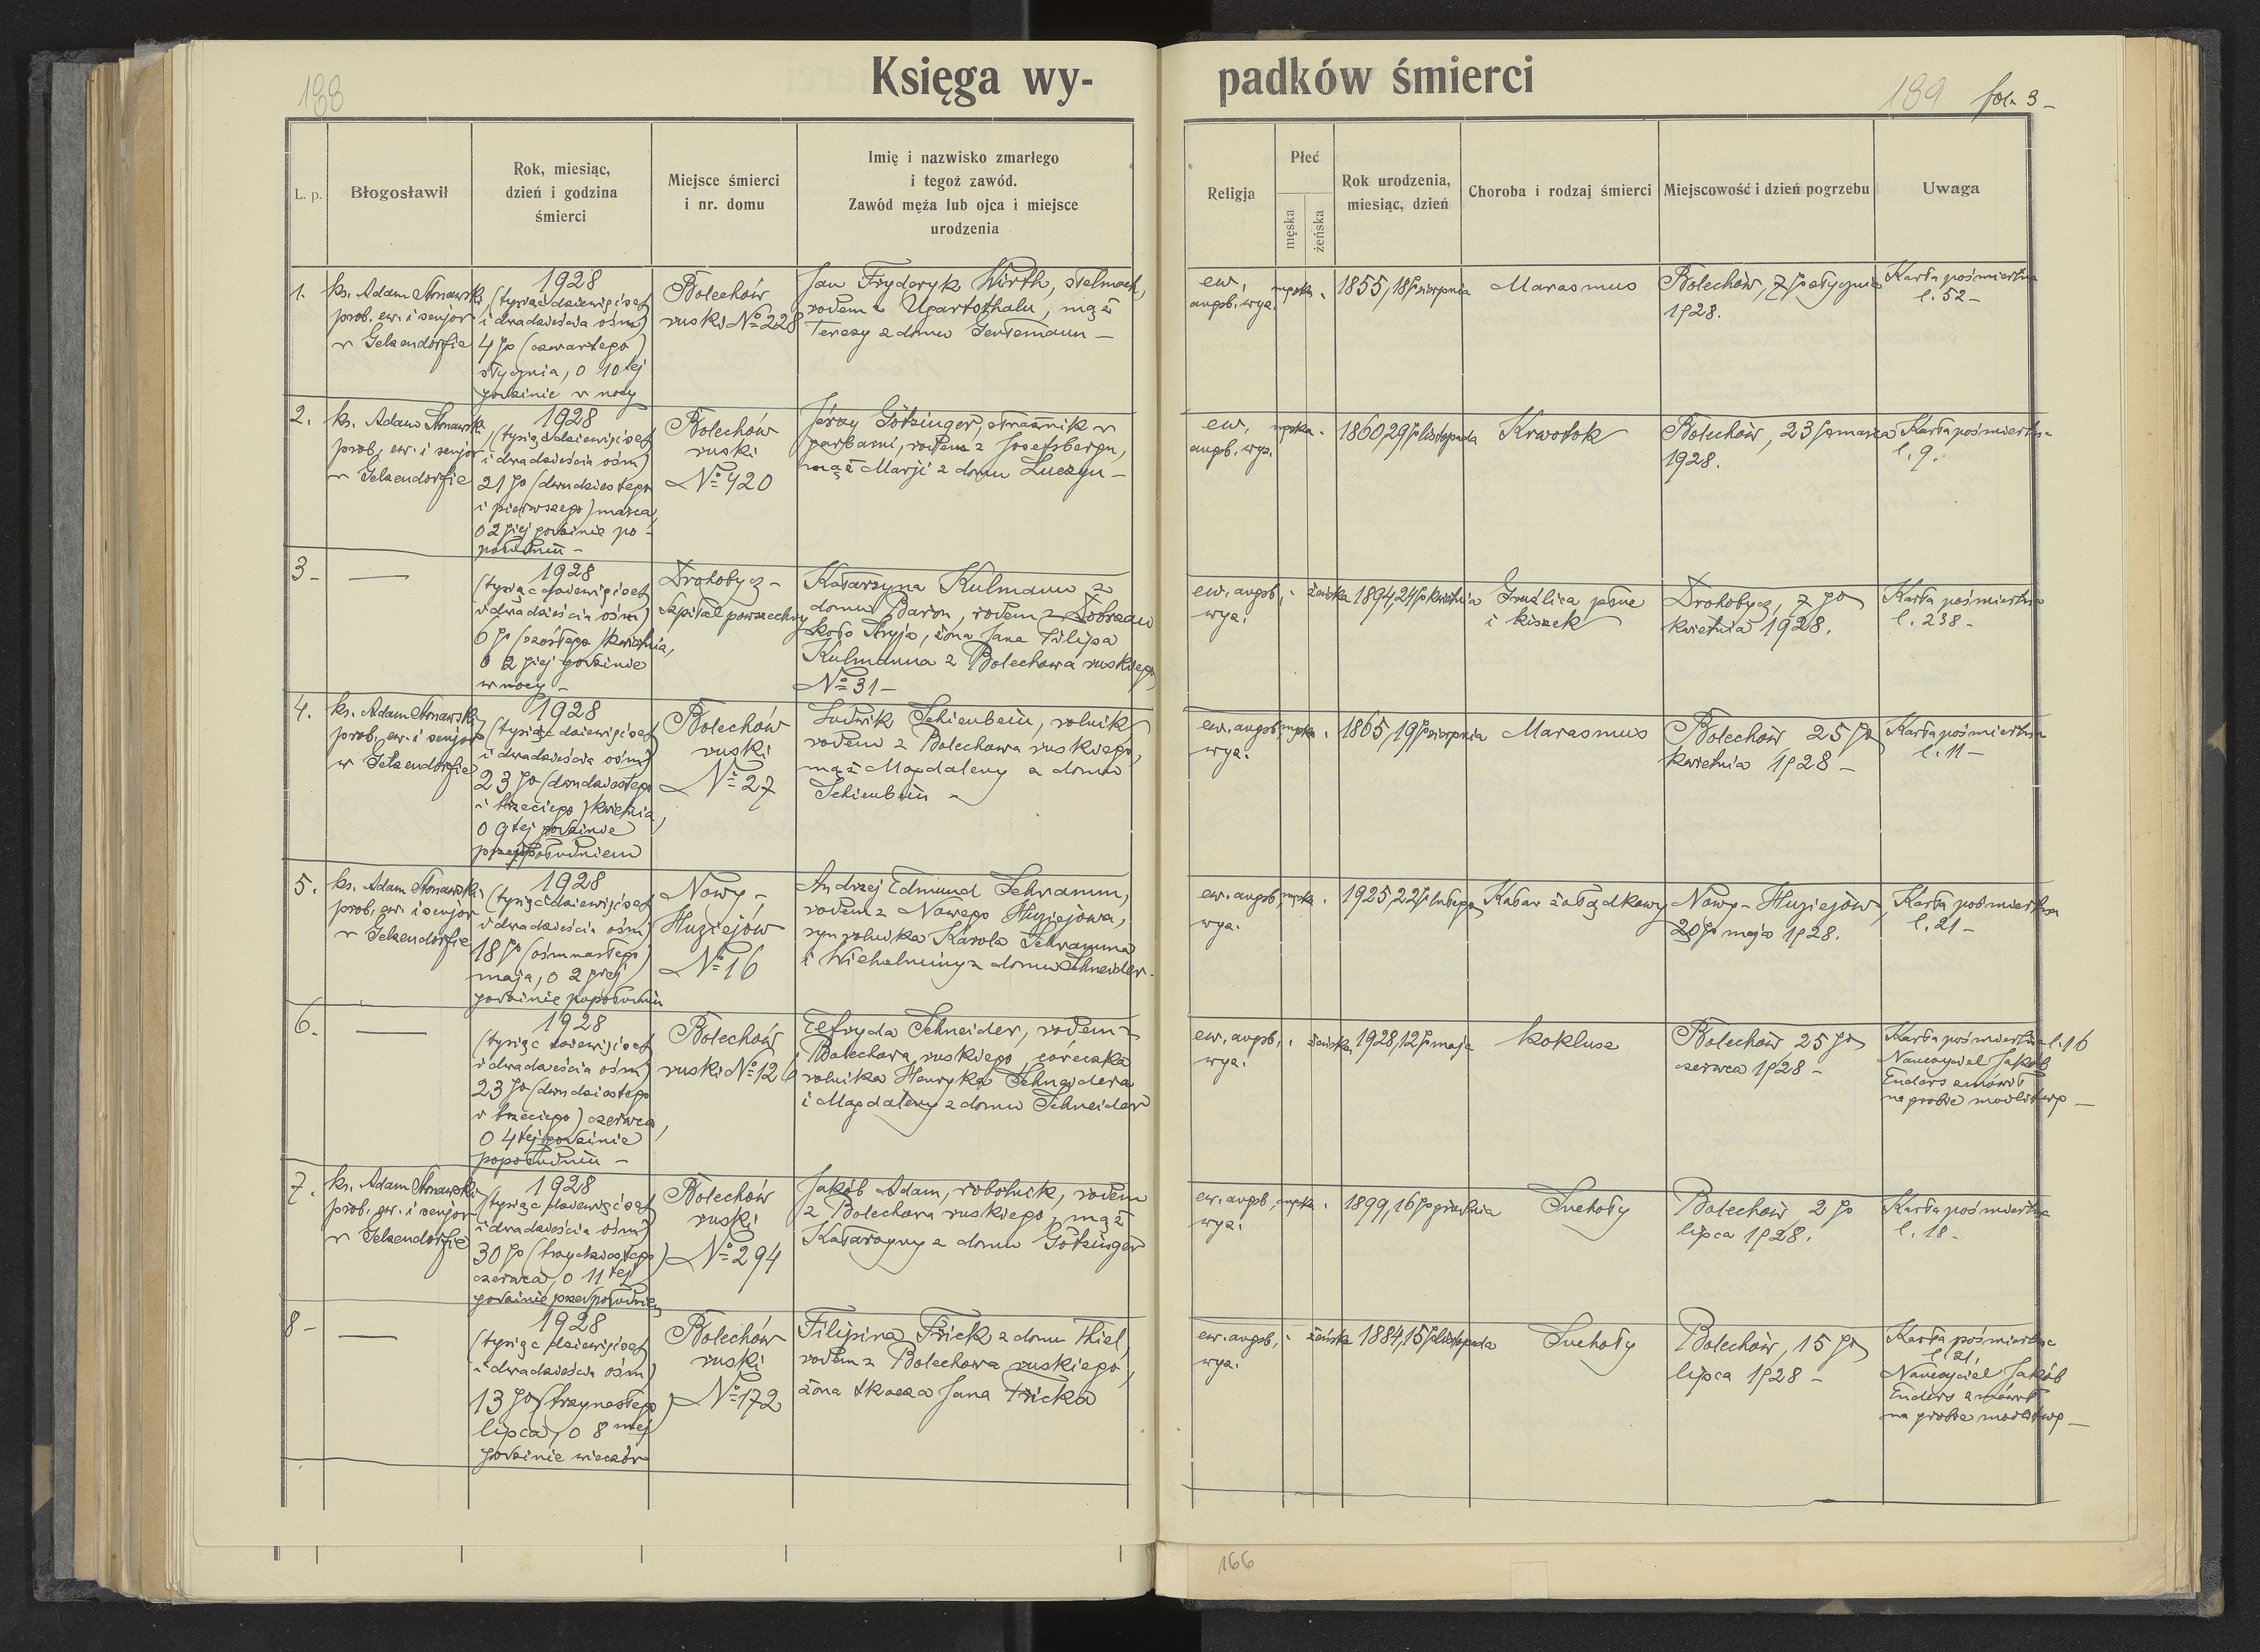 188
Księga wy-
L. p.
Błogosławił
Rok, miesiąc,
dzień i godzina
śmierci
Miejsce śmierci
i nr. domu
Imię i nazwisko zmarłego
i tegoż zawód.
Zawód męża lub ojca i miejsce
urodzenia
1.
ks. Adam
prob. ew. i senjor
w Gelsendorfie
1928
(tysiąc dziewięćset
i dwadzieścia ośm)
4go (czwartego)
stycznia, o 10tej
godzinie w nocy
Bolechów
ruski No 228
Jan Fryderyk Wirth, stelmach,
rodem z Ugartsthalu, mąż
Terezy z domu Gentemann –
2.
ks. Adam
prob. ew. i senjor
w Gelsendorfie
1928
(tysiąc dziewięćset
i dwadzieścia ośm)
21go (dwudziestego
i pierwszego) marca,
o 2giej godzinie po-
południu –
Bolechów
ruski
No 420
Jerzy Götzinger, strażnik w
garbarni, rodem z Josefsbergu,
mąż Marji z domu Luczyn –
3 –
1928
(tysiąc dziewięćset
i dwadzieścia ośm)
6go (szóstego) kwietnia,
o 2giej godzinie
w nocy –
Drohobycz –
Szpital powszechny
Katarzyna Kulmann z
domu Baron, rodem z Dobrzan
koło Stryja, żona Jana Filipa
Kulmanna z Bolechowa ruskiego
No 31 –
4.
ks. Adam
prob. ew. i senjor
w Gelsendorfie
1928
(tysiąc dziewięćset
i dwadzieścia ośm)
23go (dwudziestego
i trzeciego) kwietnia,
o 9tej godzinie
przedpołudniem
Bolechów
ruski
No 27
Ludwik Schienbein, rolnik
rodem z Bolechowa ruskiego,
mąż Magdaleny z domu
Schienbein –
5.
ks. Adam
prob. ew. i senjor
w Gelsendorfie
1928
(tysiąc dziewięćset
i dwadzieścia ośm)
18go (ośmnastego)
maja, o 2giej
godzinie popołudniu
Nowy –
Huziejów
No 16
Andrzej Edmund Schramm,
rodem z Nowego Huziejowa,
syn rolnika Karola Schramma
i Wilhelminy z domu Schneider.
6.
1928
(tysiąc dziewięćset
i dwadzieścia ośm)
23go (dwudziestego
i trzeciego) czerwca,
o 4tej godzinie
popołudniu –
Bolechów
ruski No 126
Elfryda Schneider, rodem z
Bolechowa ruskiego, córeczka
rolnika Henryka Schneidera
i Magdaleny z domu Schneider
7.
ks. Adam
prob. ew. i senjor
w Gelsendorfie
1928
(tysiąc dziewięćset
i dwadzieścia ośm)
30go (trzydziestego)
czerwca, o 11tej
godzinie przedpołudniem
Bolechów
ruski
No 294
Jakób Adam, robotnik, rodem
z Bolechowa ruskiego, mąż
Katarzyny z domu Götzinger
8 –
1928
(tysiąc dziewięćset
i dwadzieścia ośm)
13go (trzynastego)
lipca, o 8mej
godzinie wieczór
Bolechów
ruski
No 172
Filipina Frick z domu Thiel,
rodem z Bolechowa ruskiego,
żona tkacza Jana Fricka
189 fol. 3 –
padków śmierci
Religja
Płeć
męska
żeńska
Rok urodzenia,
miesiąc, dzień
Choroba i rodzaj śmierci
Miejscowość i dzień pogrzebu
Uwaga
ew.
augsb. wyz.
męska
1855, 18go sierpnia
Marasmus
Bolechów, 7go stycznia
1928.
Karta pośmiertna
l. 52 –
ew.
augsb. wyz.
męska
1860, 29go listopada
Krwotok
Bolechów, 23go marca
1928.
Karta pośmiertna
l. 9.
ew. augsb.
wyz.
żeńska
1894, 24go kwietnia
Gruźlica płuc
i kiszek
Drohobycz, 7go
kwietnia 1928.
Karta pośmiertna
l. 238 –
ew. augsb.
wyz.
męska
1865, 19go sierpnia
Marasmus
Bolechów 25go
kwietnia 1928 –
Karta pośmiertna
l. 11 –
ew. augsb.
wyz.
męska
1925, 22go lutego
Katar żołądkowy
Nowy – Huziejów,
20go maja 1928.
Karta pośmiertna
l. 21 –
ew. augsb.
wyz.
żeńska
1928, 12go maja
koklusz
Bolechów 25go
czerwca 1928 –
Karta pośmiertna l. 16
Nauczyciel Jakób
Enders zmówił
na grobie modlitwę –
ew. augsb.
wyz.
męska
1899, 16go grudnia
Suchoty
Bolechów 2go
lipca 1928.
Karta pośmiertna
l. 18 –
ew. augsb.
wyz.
żeńska
1884, 15go listopada
Suchoty
Bolechów, 15go
lipca 1928 –
Karta pośmiertna
l. 21,
Nauczyciel Jakób
Enders zmówił
na grobie modlitwę –
166